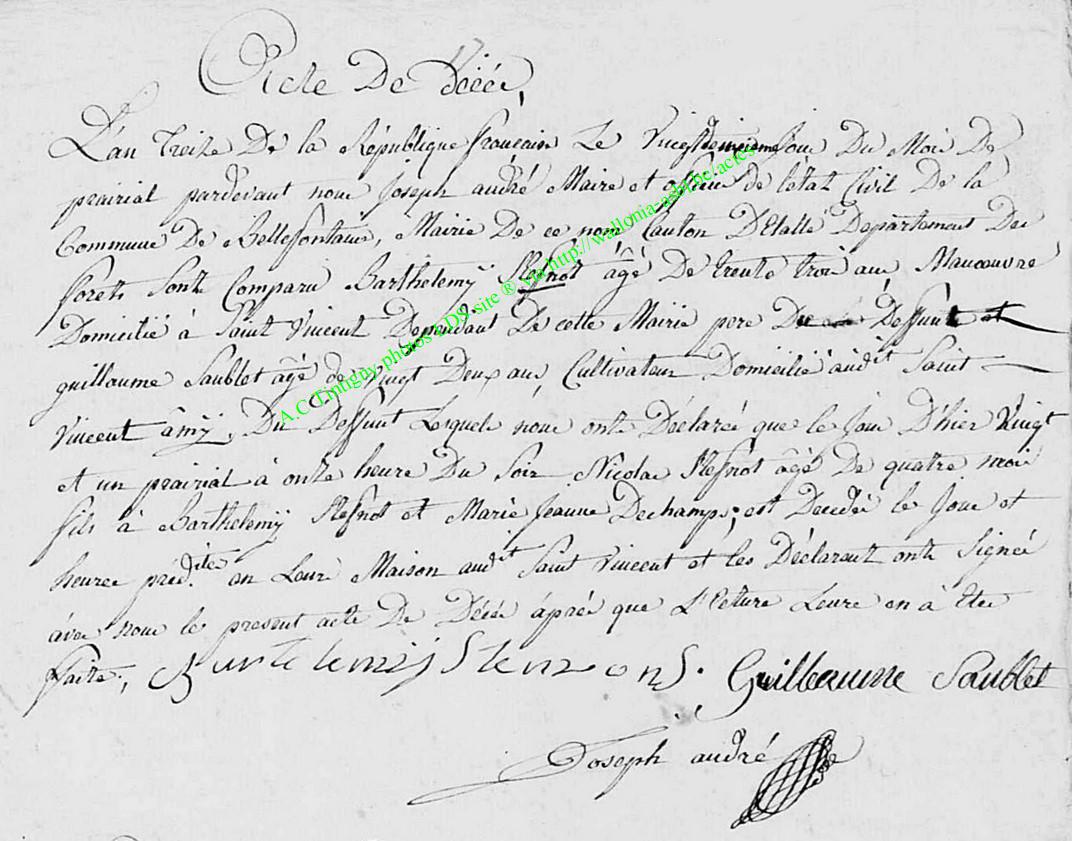 Acte De Décés,
L'an treize De la République francaise Le Vingtdeuxieme Jour Du Mois De
prairial pardevant nous Joseph andré Maire et officier de l'état Civil De la
Commune De Bellefontaine, Mairie De ce nom Canton D'Etalle Departement Des
forets Sont Comparu Barthelemÿ âgé De trente trois ans Manoeuvre
Domicilié à Saint Vincent Dependant De cette Mairie pere Du Deffunt et
guillaume Saublet âgé de Vingt Deux ans, Cultivateur Domicilié audit Saint
Vincent âmÿ, Du Deffunt Lesquels nous ont Déclarés que le Jour D'hier Vingt
et un prairial à onze heure Du Soir Nicolas âgé De quatre mois
fils à Barthelemÿ et Marie Jeanne Dechamps, est Decedé le Jour et
heures préd.ite en Leurs Maison audit Saint Vincent et les Déclarant ont Signés
avec nous le present acte De Décés áprés que L'Ecture Leurs en à Eté
faite,
Guillaume Saublet
Joseph andré
A.C Tintigny photos LDS site ® via http://wallonia-asbl.be/actes